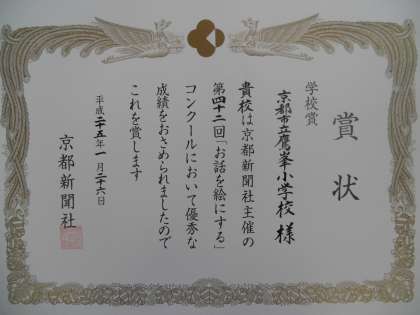 賞状
学校賞
京都市立鷹峯小学校 様
貴校は京都新聞社主催の
第四十二回「お話を絵にする」
コンクールにおいて優秀な
成績をおさめられましたので
これを賞します
平成二十五年一月二十六日
京都新聞社